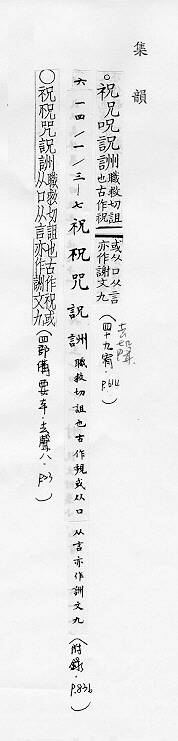 集韻
○祝咒呪説詶職救切詛也古作祝或从口从言亦作詶文九
(四十九宥 P.614)
去聲
六一四/一/三—七祝祝咒説詶職救切詛也古作祝或从口从言亦作詶文九(附錄 P.836)
○祝祝咒説詶職救切詛也古作祝或从口从言亦作詶文九
(四部備要本·去聲八· P.3)